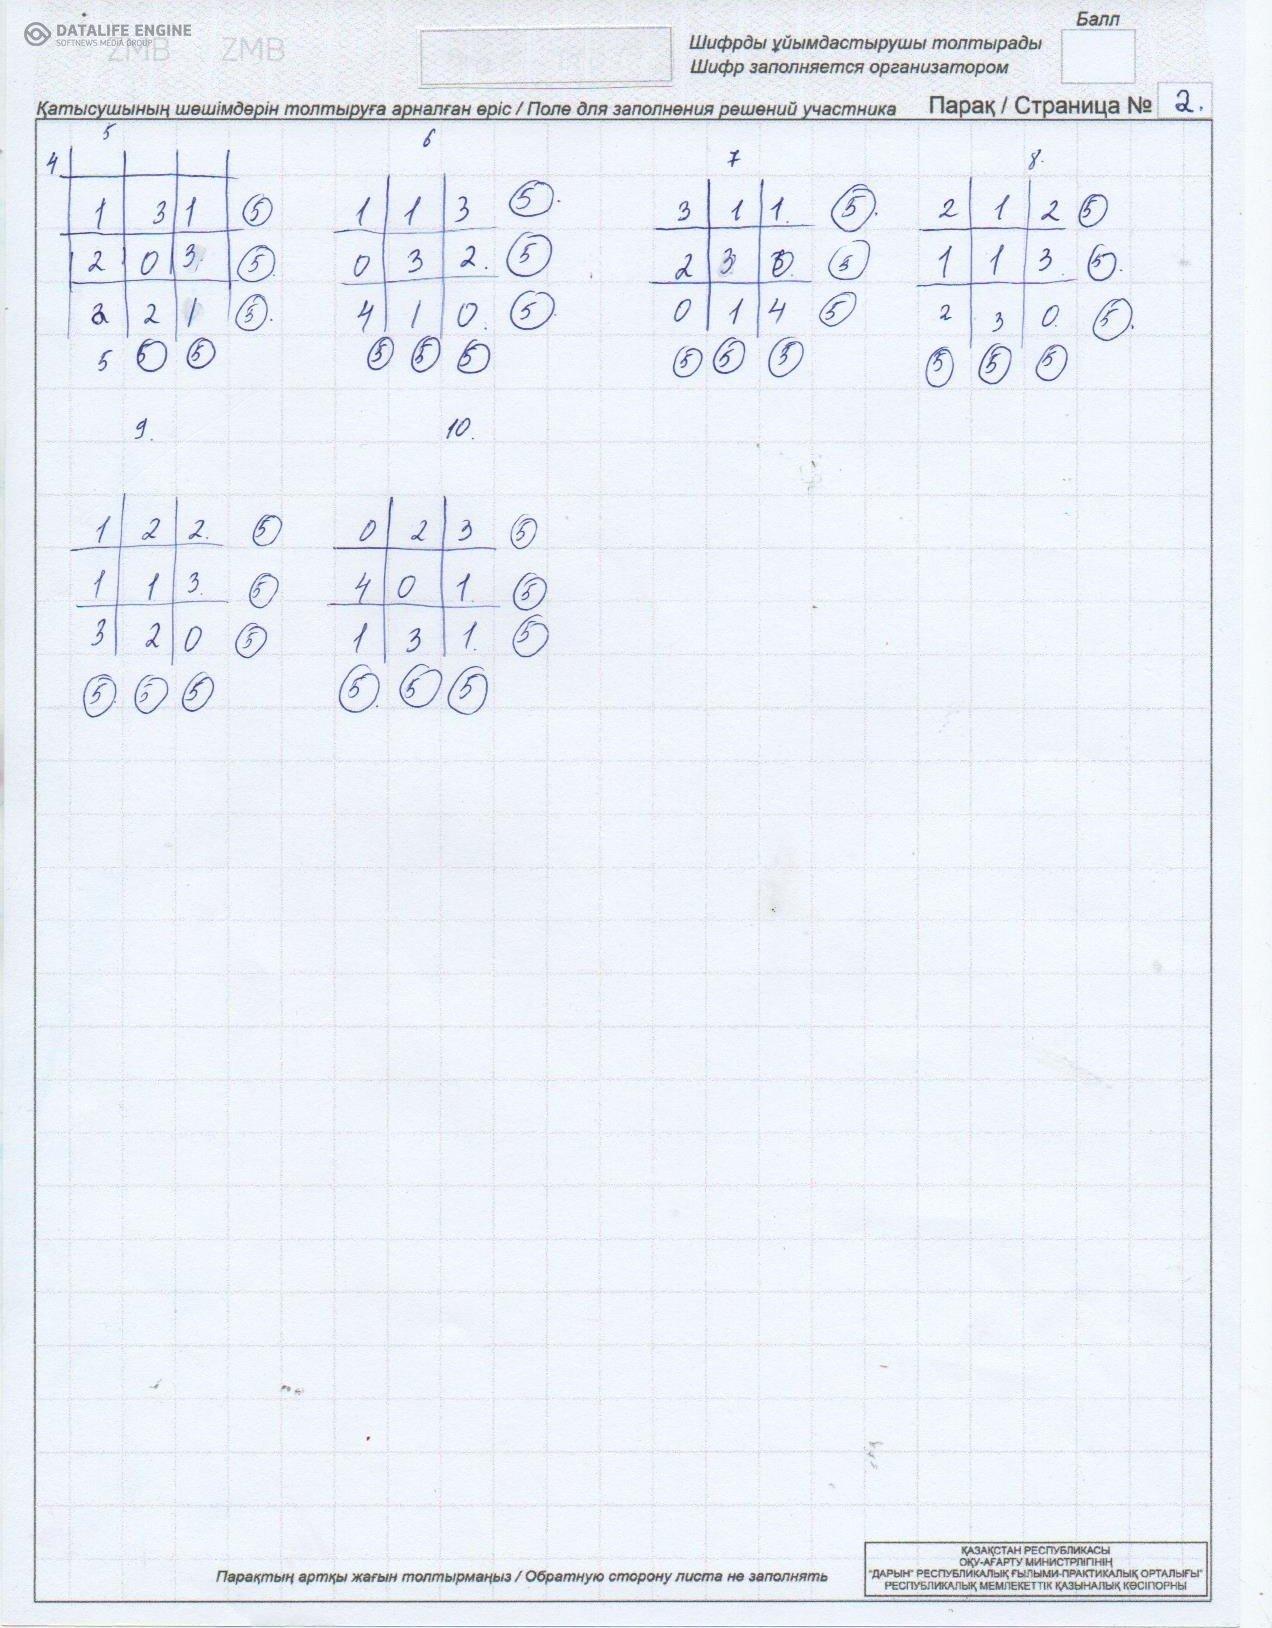 DATALIFE ENGINE
SOFTNEWS MEDIA GROUP
ZMB ZMB
Балл
Шифрды ұйымдастырушы толтырады
Шифр заполняется организатором
Қатысушының шешімдерін толтыруға арналған өріс / Поле для заполнения решений участника Парақ / Страница № 2.
5 6 7 8.
4
1 3 1 5 1 1 3 5. 3 1 1. 5. 2 1 2 5
2 0 3 5. 0 3 2. 5 2 3 0. 5 1 1 3. 5.
2 2 1 5. 4 1 0. 5. 0 1 4 5 2 3 0. 5.
5 5 5 5 5 5 5 5 5 5 5 5
9. 10.
1 2 2. 5 0 2 3 5
1 1 3. 5 4 0 1. 5
3 2 0 5 1 3 1. 5
5. 5 5 5. 5 5
Парақтың артқы жағын толтырмаңыз / Обратную сторону листа не заполнять
ҚАЗАҚСТАН РЕСПУБЛИКАСЫ
ОҚУ-АҒАРТУ МИНИСТРЛІГІНІҢ
"ДАРЫН" РЕСПУБЛИКАЛЫҚ ҒЫЛЫМИ-ПРАКТИКАЛЫҚ ОРТАЛЫҒЫ"
РЕСПУБЛИКАЛЫҚ МЕМЛЕКЕТТІК ҚАЗЫНАЛЫҚ КӘСІПОРНЫ